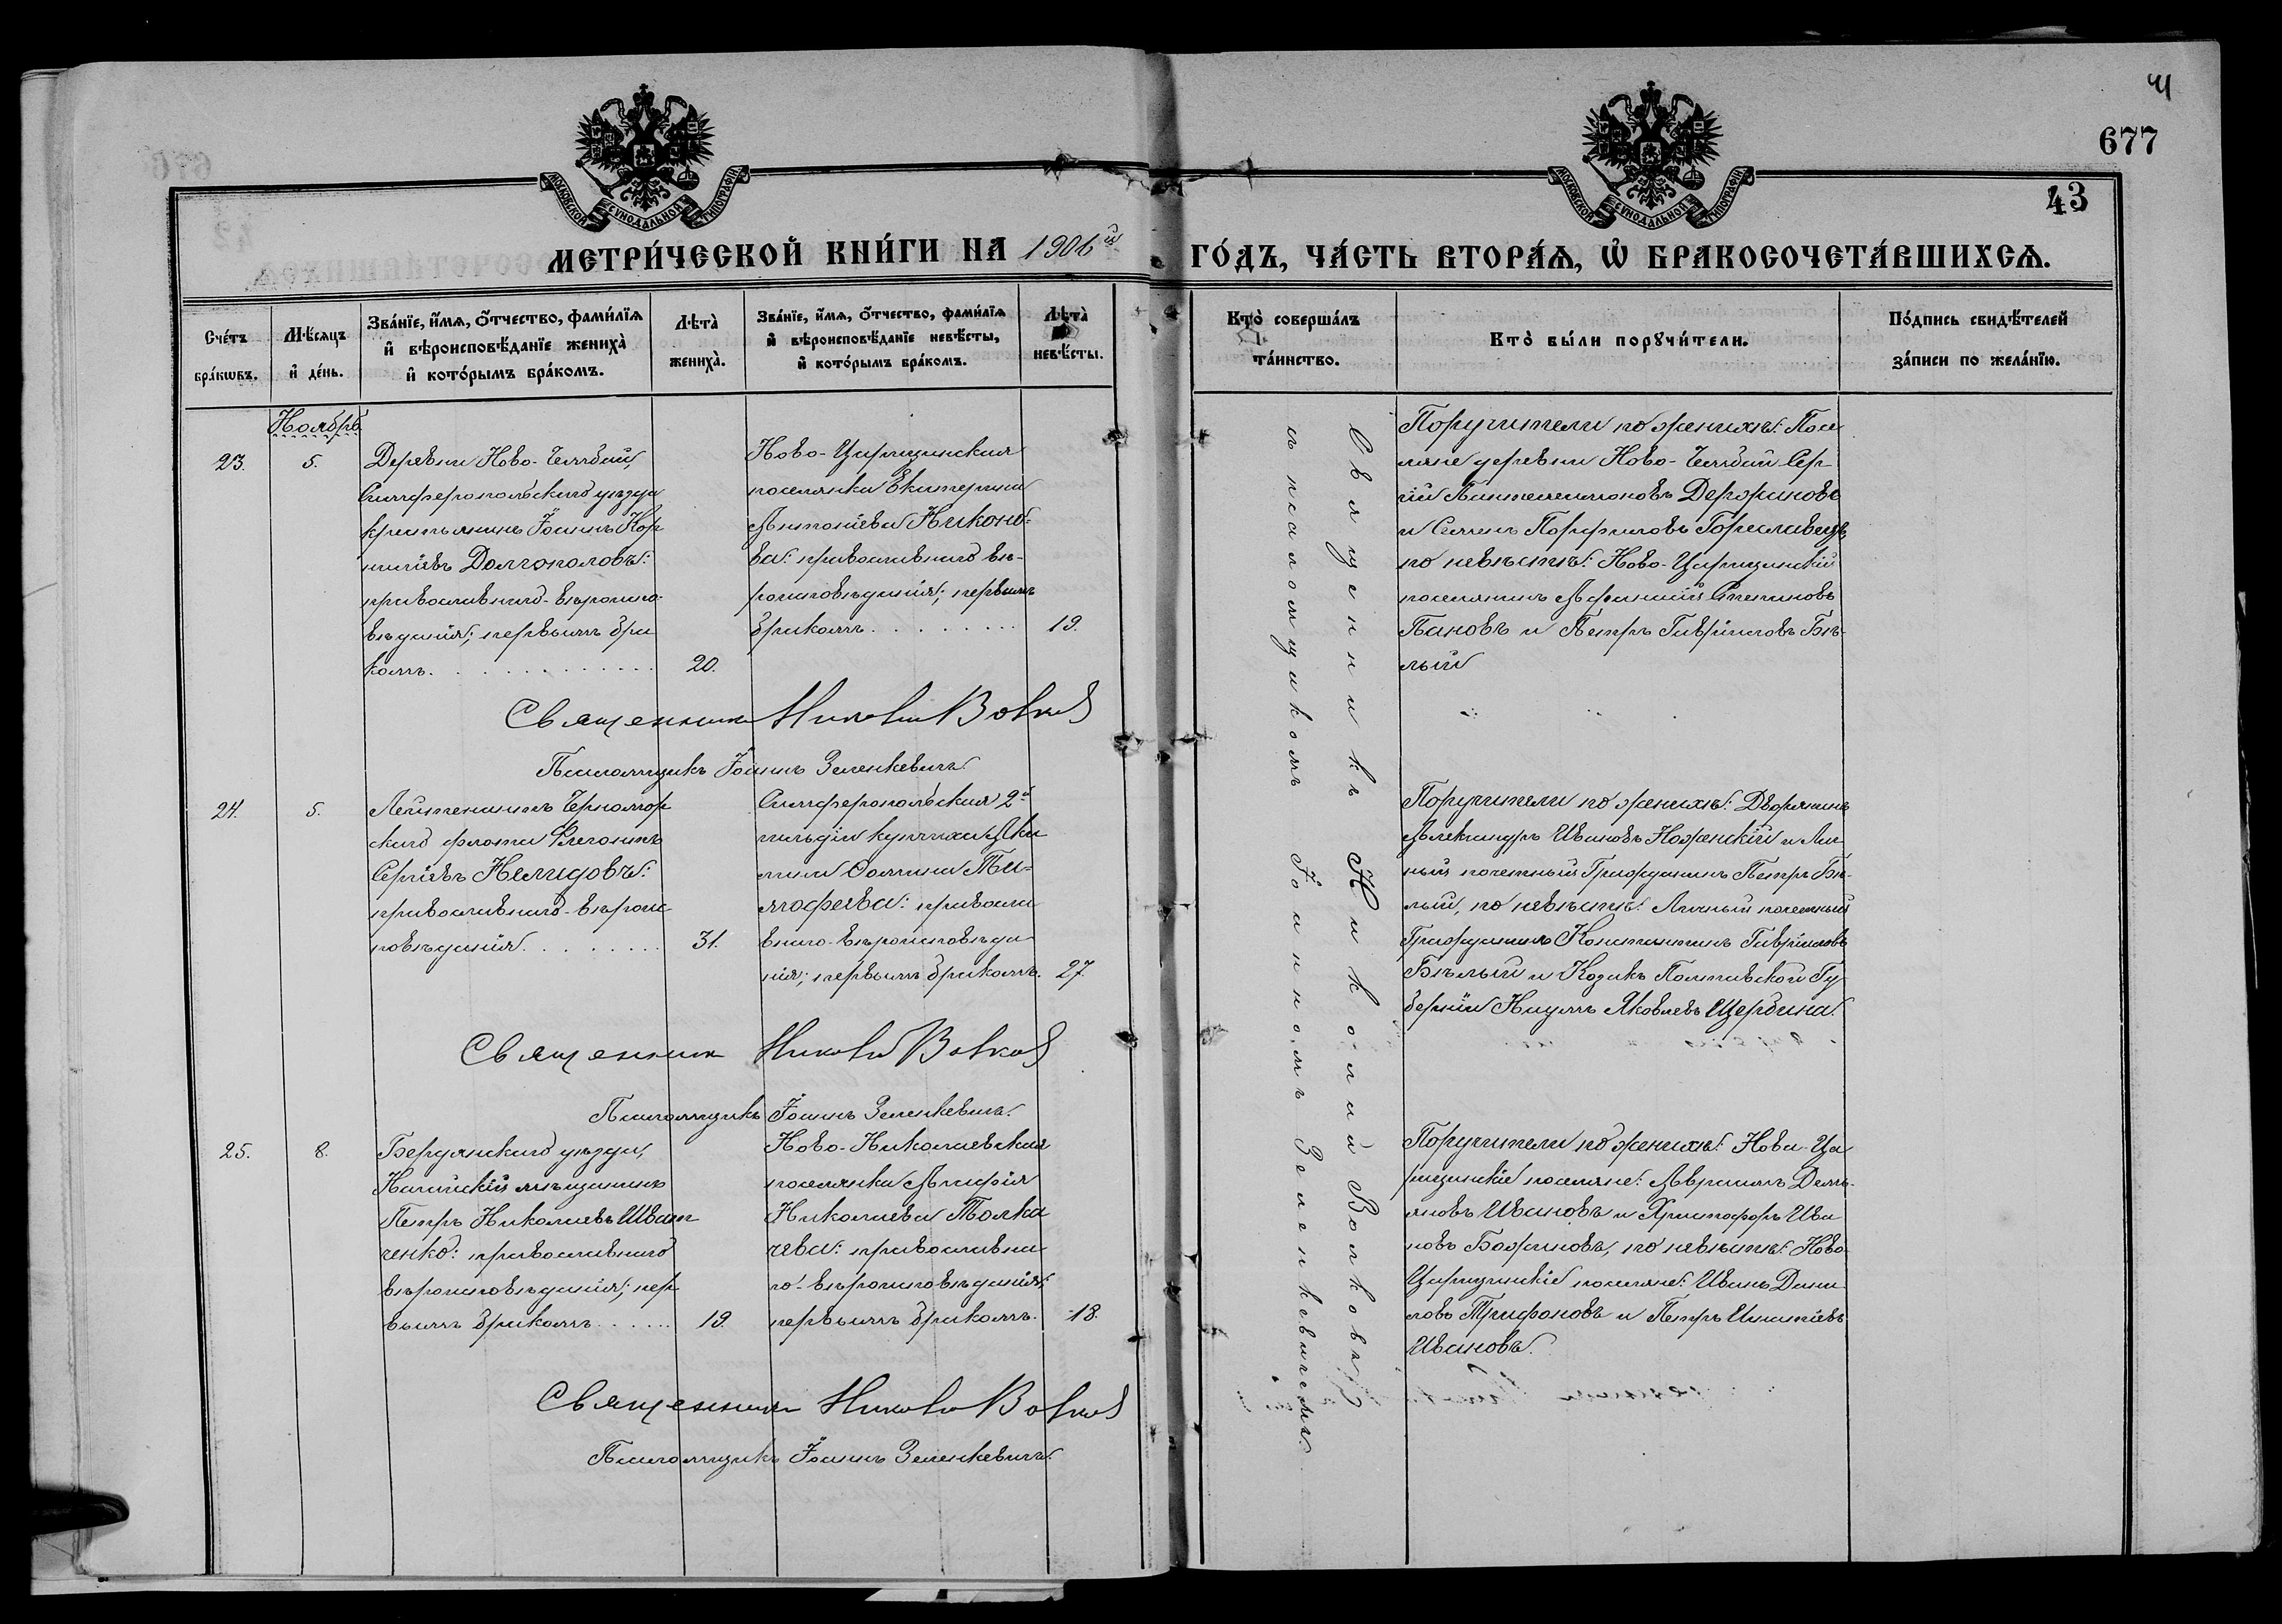 41
677
43
МОСКОВСКОЙ СѴНОДАЛЬНОЙ ТИПОГРАФІИ
МОСКОВСКОЙ СѴНОДАЛЬНОЙ ТИПОГРАФІИ
МЕТРИ́ЧЕСКОЙ КНИ́ГИ НА 1906й ГО́ДЪ, ЧА́СТЬ ВТОРА́Я, Ѡ҆ БРАКОСОЧЕТА́ВШИХСЯ.
Сче́тъ бра́кѡвъ.
Мѣ́сяцъ и҆ де́нь.
Зва́нїе, и҆́мя, ѻ҆́тчество, фами́лїя
и҆ вѣроисповѣ́данїе жениха̀
и҆ кото́рымъ бра́комъ.
Лѣта̀ жениха̀.
Зва́нїе, и҆́мя, ѻ҆́тчество, фами́лїя
и҆ вѣроисповѣ́данїе невѣ́сты,
и҆ кото́рымъ бра́комъ.
Лѣта̀ невѣ́сты.
Кто̀ соверша́лъ та́инство.
Кто̀ бы́ли порꙋчи́тели.
По́дпись свидѣ́телей за́писи по жела́нїю.
Ноябрь
23.
5.
Деревни Ново-
Симферопольскаго уѣзда
крестьянинъ Іоаннъ Кор
ниліевъ Долгополовъ:
православнаго-вѣроиспо-
вѣданія; первымъ бра
комъ.
20.
Ново-Царицинская
поселянка Екатерина
Антоніева Никоно-
ва: православнаго вѣ-
роисповѣданія; первымъ
бракомъ
19.
Поручители по женихѣ: Посе
ляне деревни Ново- Сер
гій Пантелеимоновъ Дерожиновъ
и Семенъ Порфировъ Гореславецъ
по невѣстѣ: Ново-Царицинскій
поселянинъ Афанасій Степановъ
Пановъ и Петръ Гавріиловъ Бѣ-
лый
Священникъ Николай Волковъ
Псаломщикъ Іоаннъ Зеленкевичъ.
24.
5.
Лейтенантъ Черномор
скаго флота Флегонтъ
Сергіевъ Нелидовъ:
православнаго-вѣроис
повѣданія.
31.
Симферопольская 2й
гильдіи купчиха
Ти-
мофеева: правосла
внаго-вѣроисповѣда
нія; первымъ бракомъ.
27
Поручители по женихѣ: Дворянинъ
Александръ Ивановъ Ноженскій и Лич
ный почетный Гражданинъ Петръ Бѣ-
лый, по невѣстѣ: Личный почетный
Гражданинъ Константинъ Гавріиловъ
Бѣлый и Козакъ Полтавской Гу
берніи Наумъ Яковлевъ Щербина.
Священникъ Николай Волковъ
Псаломщикъ Іоаннъ Зеленкевичъ.
25.
8.
Бердянскаго уѣзда,
Ногайскій мѣщанинъ
Петръ Николаевъ Иват
ченко: православнаго
вѣроисповѣданія; пер
вымъ бракомъ
19.
Ново-Николаевская
поселянка Агафія
Николаева Толка
чева: православна
го-вѣроисповѣданія;
первымъ бракомъ.
18.
Поручители по женихѣ: Ново-Ца
рицинскіе поселяне: Авраамъ Демь-
яновъ Ивановъ и Христофоръ Ива
новъ Божиновъ, по невѣстѣ: Ново-
Царицинскіе поселяне: Иванъ Дани
ловъ Трифоновъ и Петръ Игнатіевъ
Ивановъ.
Священникъ Николай Волковъ
Псаломщикъ Іоаннъ Зеленкевичъ.
Священникъ Николай Волковъ
съ псаломщикомъ Іоанномъ Зеленкевичемъ.